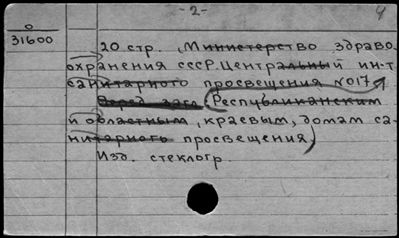 -2-
4
0
31600
20 стр. Министерство здраво-
охранения СССР. Центральный ин-т
санитарного просвещения №017
Перед загл. Республиканским
и областным, краевым, домам са-
нитарного просвещения.
Изд. стеклогр.